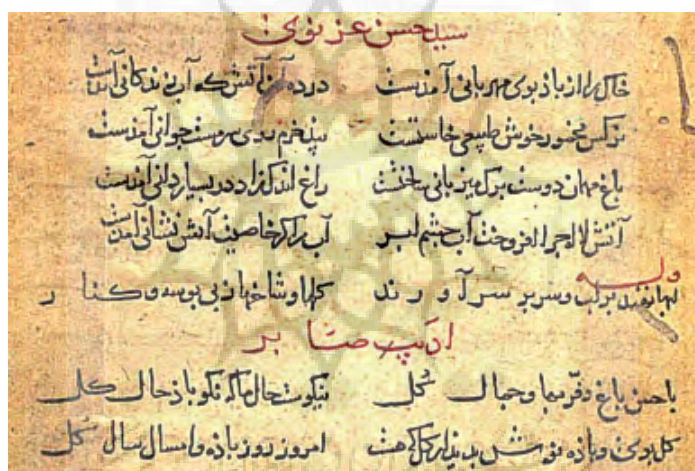 سید حسن غزنوی
خاک را از باد بوی مهربانی آمدست در ده آن آتش که آب زندگانی آمدست
نرکس مخمور خوش طبیعی خاستست بید خرم روی سرمست جوانی آمدست
باغ مهمان دوست برک میزبانی ساختست راغ اندک زاد در بسیار دانی آمدست
آتش لاله چرا افروخت آب چشم ابر آب را کر خاصیت آتش نشانی آمدست
وله
لبها نهند بر لب و سر بر سر آورند کلها و شاخها ز پی بوسه و کنار
ادیب صابر
با حسن باغ و فر بها و جمال کل نیکوست حال ما که نکو باذ حال کل
کل بوی و باذه نوش امروز روز باذه و امسال سال کل